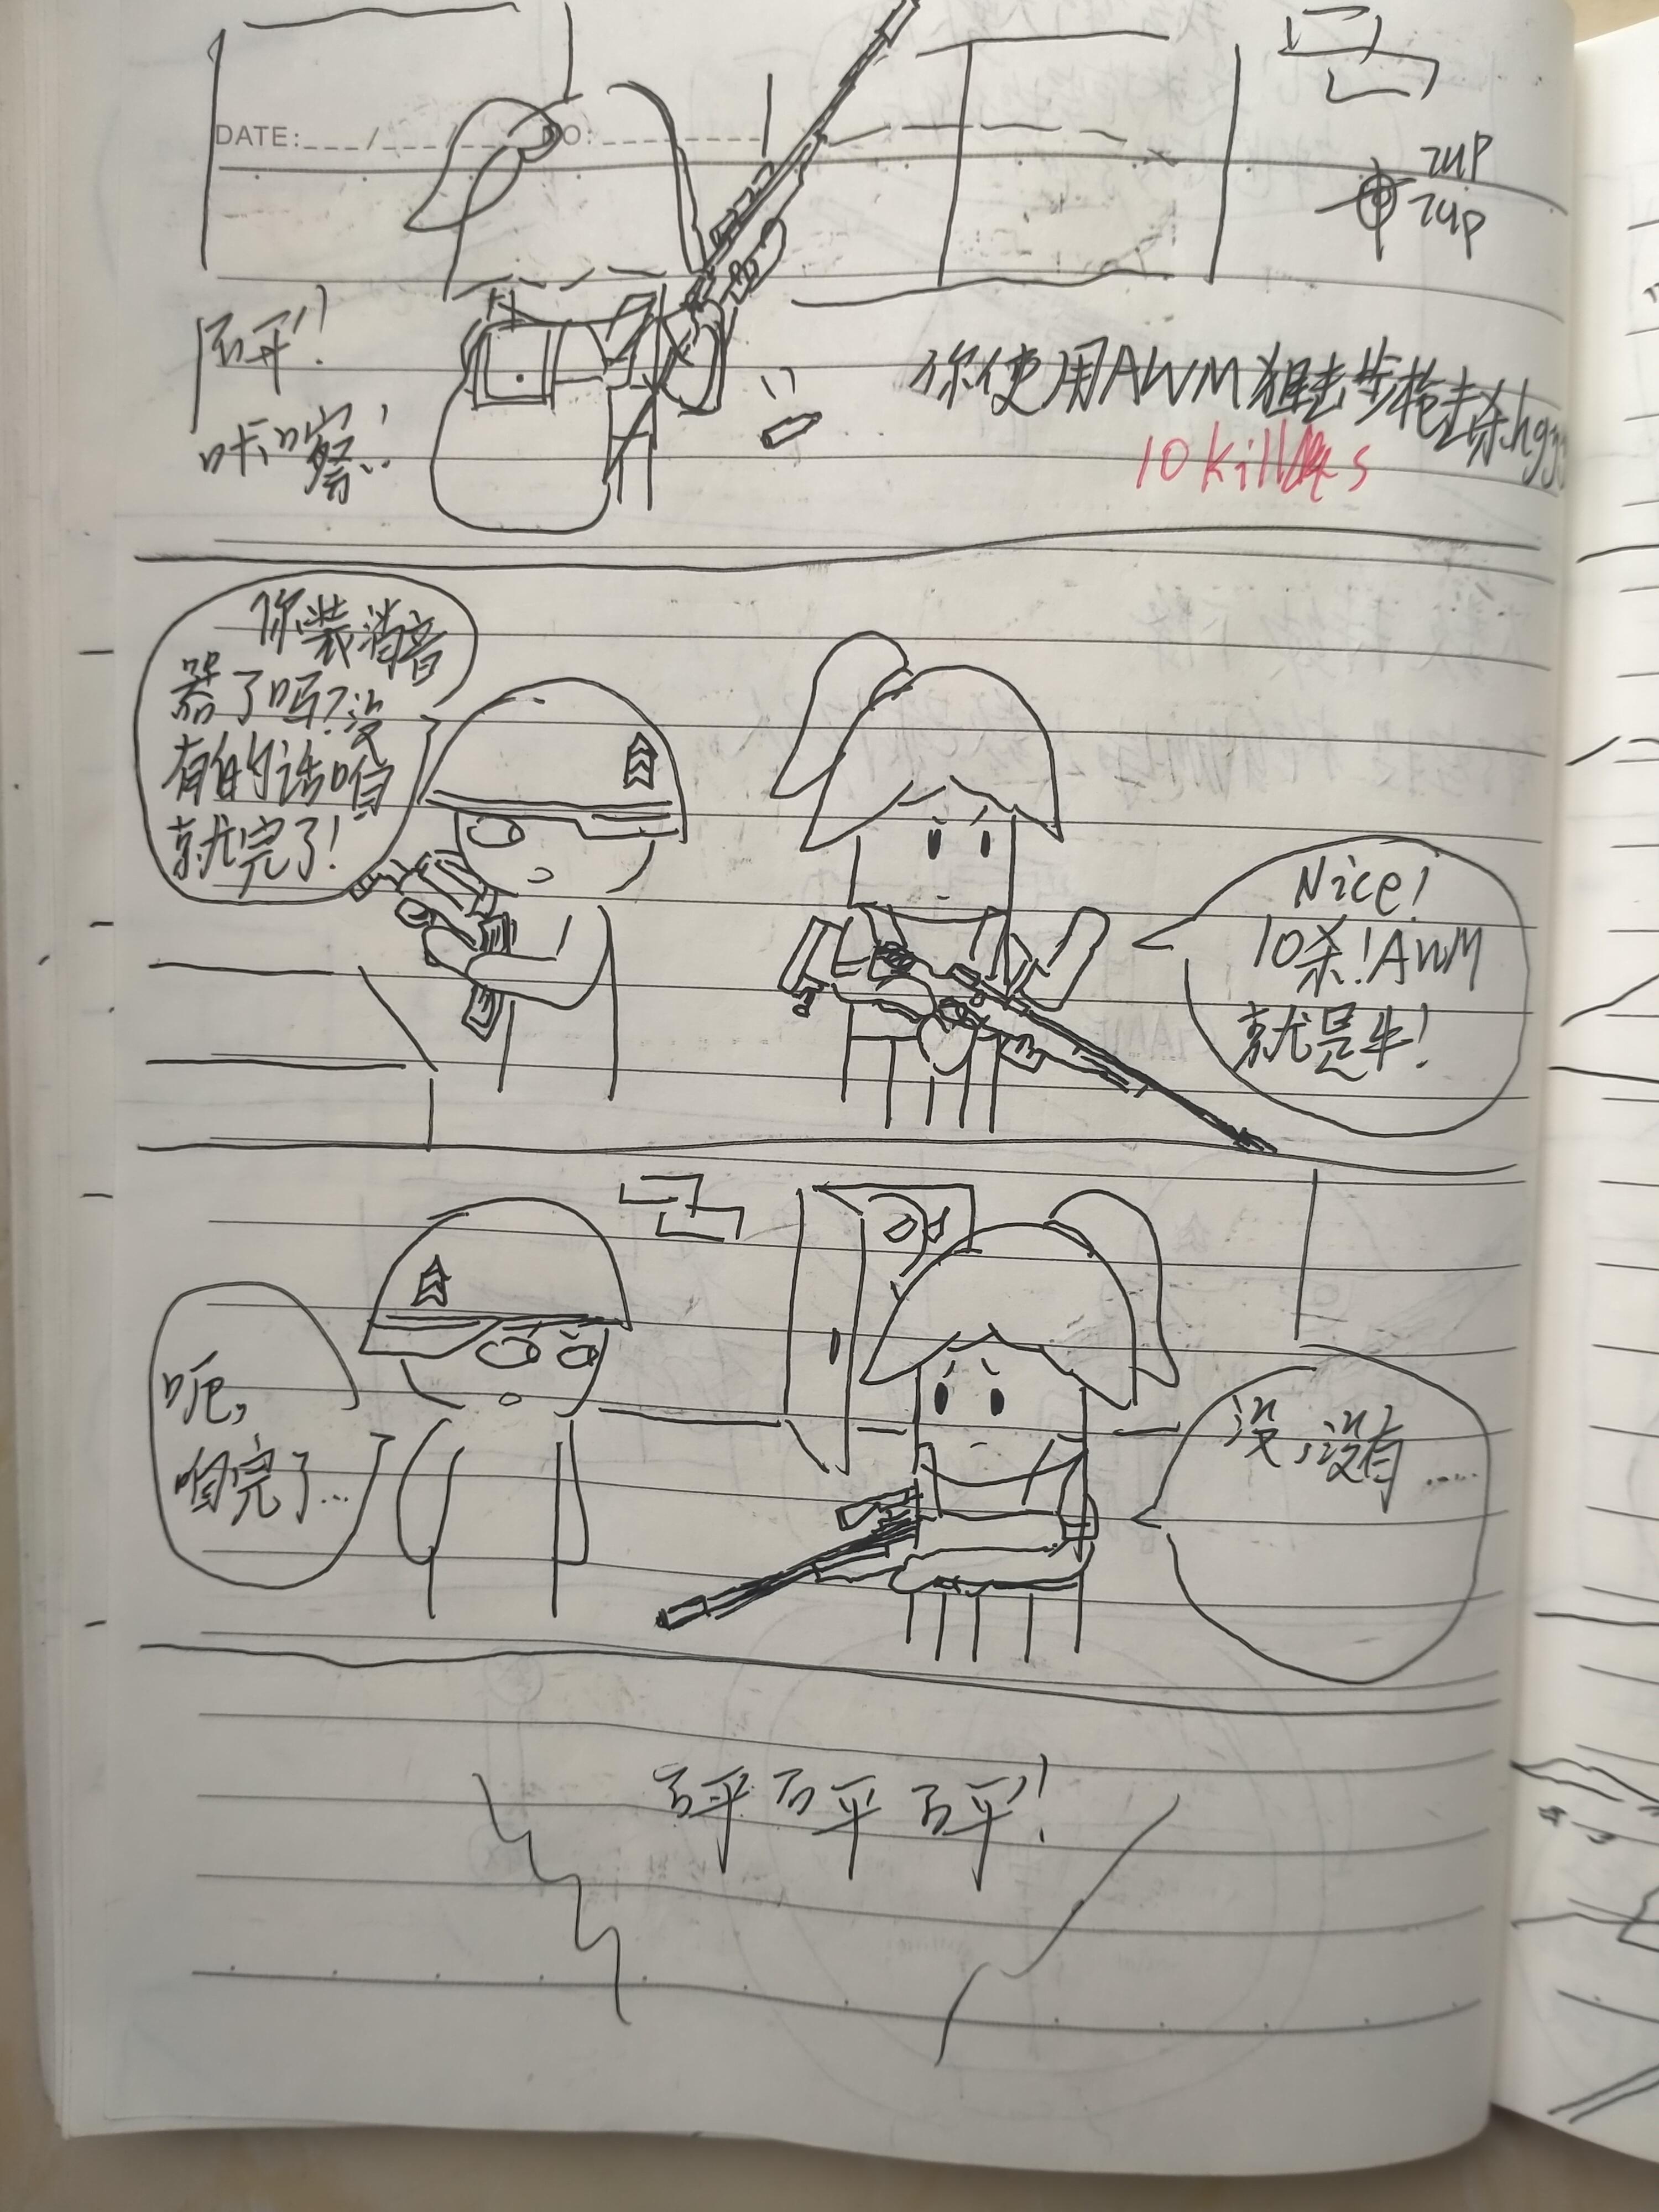 DATE:___/___/___ NO:
7up
7up
砰!
咔嚓!
你使用AWM狙击步枪击杀hggg
10 kills
你装消音
器了吗?没
有的话咱
就完了!
Nice!
10杀!AWM
就是牛!
呃,
咱完了...
没,没有......
砰砰砰!